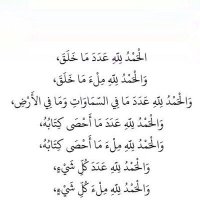 الْحَمْدُ لِلّهِ عَدَدَ مَا خَلَقَ،
وَالْحَمْدُ لِلّهِ مِلْءَ مَا خَلَقَ،
وَالْحَمْدُ لِلّهِ عَدَدَ مَا فِي السَّمَاوَاتِ وَمَا فِي الأَرْضِ،
وَالْحَمْدُ لِلّهِ عَدَدَ مَا أَحْصَى كِتَابُهُ،
وَالْحَمْدُ لِلّهِ مِلْءَ مَا أَحْصَى كِتَابُهُ،
وَالْحَمْدُ لِلّهِ عَدَدَ كُلِّ شَيْءٍ،
وَالْحَمْدُ لِلّهِ مِلْءَ كُلِّ شَيْءٍ،